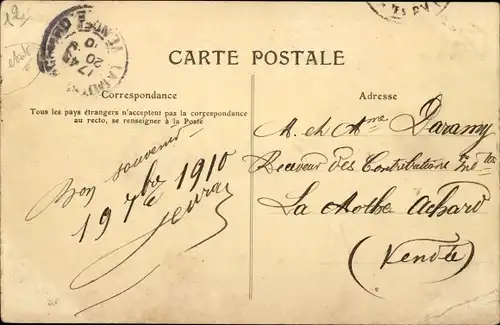 12
CARTE POSTALE
Correspondance
Tous les pays étrangers n'acceptent pas la correspondance
au recto, se renseigner à la Poste
Bon souvenir
19 7bre 1910
Adresse
M. et Mme Daramy
Receveur des Contributions Indtes
La Mothe Achard
(Vendée)
17 45
20